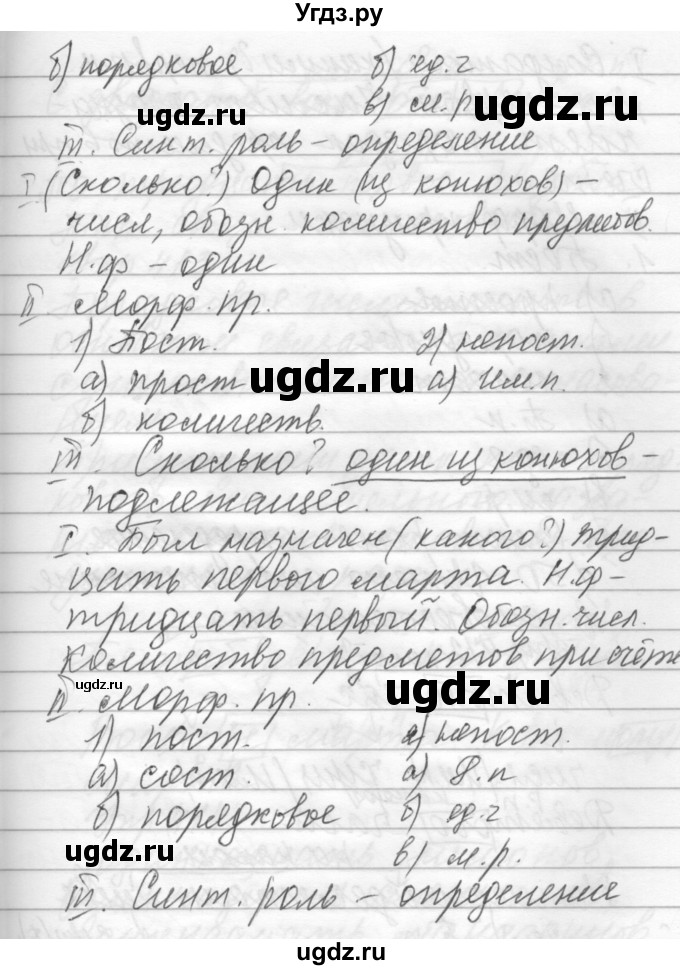 Угдз.ру
б) порядковое б) ед.ч
в) м.р
ugdz.ru ugdz.ru
III. Синт. роль – определение
I. (Сколько?) Один (из конюхов) –
числ, обозн. количество предметов.
Н.ф – один
II Морф. пр.
1) Пост. 2) непост.
а) прост ugdz.ru а) Им.п.
б) количеств.
III. Сколько? один из конюхов –
подлежащее.
I. Был назначен (какого?) трид-
цать первого марта. Н.ф –
тридцать первый. Обозн. числ.
количество предметов при счёте
ugdz.ru ugdz.ru
II. Морф. пр.
1) пост. 2) непост.
а) сост. а) Р.п
б) порядковое б) ед.ч
ugdz.ru в) м.р.
III. Синт. роль – определение
ugdz.ru